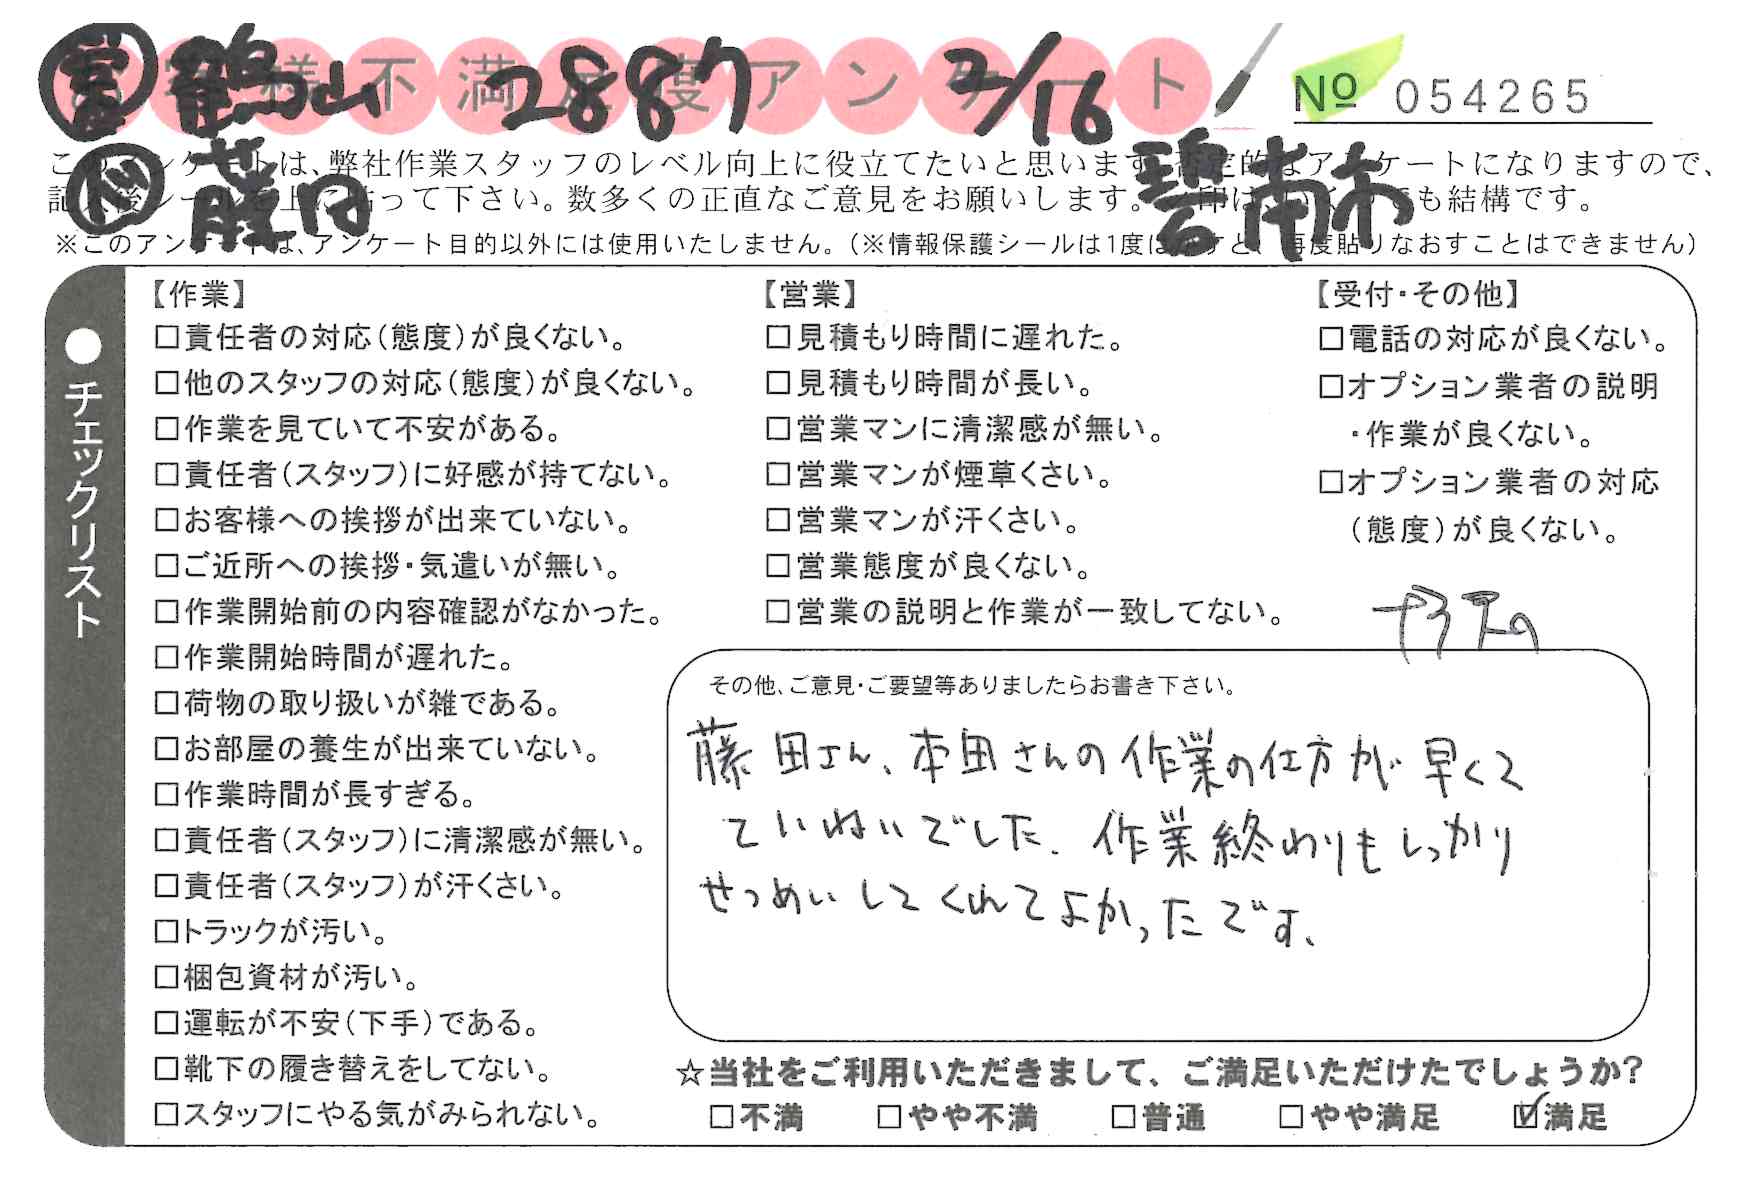 お客様不満足度アンケート
営 鶴山 2887 2/16
№ 054265
藤田 碧南市
このアンケートは、弊社作業スタッフのレベル向上に役立てたいと思います。否定的なアンケートになりますので、
記入後シールを上に貼って下さい。数多くの正直なご意見をお願いします。
も結構です。
※このアンケートは、アンケート目的以外には使用いたしません。(※情報保護シールは1度はがすと、再度貼りなおすことはできません)
●チェックリスト
【作業】
□責任者の対応(態度)が良くない。
□他のスタッフの対応(態度)が良くない。
□作業を見ていて不安がある。
□責任者(スタッフ)に好感が持てない。
□お客様への挨拶が出来ていない。
□ご近所への挨拶・気遣いが無い。
□作業開始前の内容確認がなかった。
□作業開始時間が遅れた。
□荷物の取り扱いが雑である。
□お部屋の養生が出来ていない。
□作業時間が長すぎる。
□責任者(スタッフ)に清潔感が無い。
□責任者(スタッフ)が汗くさい。
□トラックが汚い。
□梱包資材が汚い。
□運転が不安(下手)である。
□靴下の履き替えをしてない。
□スタッフにやる気がみられない。
【営業】
□見積もり時間に遅れた。
□見積もり時間が長い。
□営業マンに清潔感が無い。
□営業マンが煙草くさい。
□営業マンが汗くさい。
□営業態度が良くない。
□営業の説明と作業が一致してない。
【受付・その他】
□電話の対応が良くない。
□オプション業者の説明
・作業が良くない。
□オプション業者の対応
(態度)が良くない。
その他、ご意見・ご要望等ありましたらお書き下さい。
藤田さん、本田さんの作業の仕方が早くて
ていねいでした。作業終わりもしっかり
せつめいしてくれてよかったです、
☆当社をご利用いただきまして、ご満足いただけたでしょうか?
□不満 □やや不満 □普通 □やや満足 ☑満足